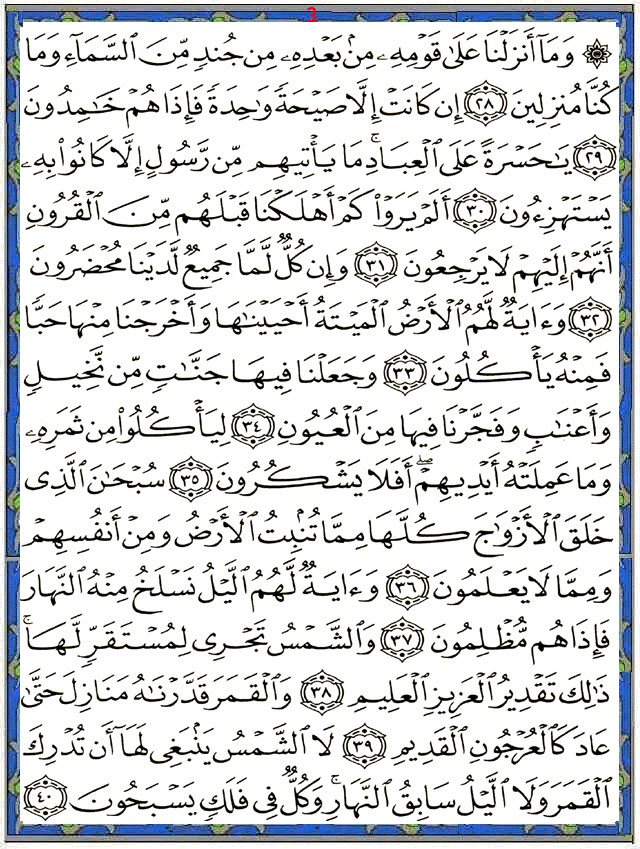 3
۞ وَمَآ أَنزَلْنَا عَلَىٰ قَوْمِهِۦ مِنۢ بَعْدِهِۦ مِن جُندٍ مِّنَ ٱلسَّمَآءِ وَمَا
كُنَّا مُنزِلِينَ ٢٨ إِن كَانَتْ إِلَّا صَيْحَةً وَٰحِدَةً فَإِذَا هُمْ خَٰمِدُونَ
٢٩ يَٰحَسْرَةً عَلَى ٱلْعِبَادِ ۚ مَا يَأْتِيهِم مِّن رَّسُولٍ إِلَّا كَانُوا۟ بِهِۦ
يَسْتَهْزِءُونَ ٣٠ أَلَمْ يَرَوْا۟ كَمْ أَهْلَكْنَا قَبْلَهُم مِّنَ ٱلْقُرُونِ
أَنَّهُمْ إِلَيْهِمْ لَا يَرْجِعُونَ ٣١ وَإِن كُلٌّ لَّمَّا جَمِيعٌ لَّدَيْنَا مُحْضَرُونَ
٣٢ وَءَايَةٌ لَّهُمُ ٱلْأَرْضُ ٱلْمَيْتَةُ أَحْيَيْنَٰهَا وَأَخْرَجْنَا مِنْهَا حَبًّا
فَمِنْهُ يَأْكُلُونَ ٣٣ وَجَعَلْنَا فِيهَا جَنَّٰتٍ مِّن نَّخِيلٍ
وَأَعْنَٰبٍ وَفَجَّرْنَا فِيهَا مِنَ ٱلْعُيُونِ ٣٤ لِيَأْكُلُوا۟ مِن ثَمَرِهِۦ
وَمَا عَمِلَتْهُ أَيْدِيهِمْ ۖ أَفَلَا يَشْكُرُونَ ٣٥ سُبْحَٰنَ ٱلَّذِى
خَلَقَ ٱلْأَزْوَٰجَ كُلَّهَا مِمَّا تُنۢبِتُ ٱلْأَرْضُ وَمِنْ أَنفُسِهِمْ
وَمِمَّا لَا يَعْلَمُونَ ٣٦ وَءَايَةٌ لَّهُمُ ٱلَّيْلُ نَسْلَخُ مِنْهُ ٱلنَّهَارَ
فَإِذَا هُم مُّظْلِمُونَ ٣٧ وَٱلشَّمْسُ تَجْرِى لِمُسْتَقَرٍّ لَّهَا ۚ
ذَٰلِكَ تَقْدِيرُ ٱلْعَزِيزِ ٱلْعَلِيمِ ٣٨ وَٱلْقَمَرَ قَدَّرْنَٰهُ مَنَازِلَ حَتَّىٰ
عَادَ كَٱلْعُرْجُونِ ٱلْقَدِيمِ ٣٩ لَا ٱلشَّمْسُ يَنۢبَغِى لَهَآ أَن تُدْرِكَ
ٱلْقَمَرَ وَلَا ٱلَّيْلُ سَابِقُ ٱلنَّهَارِ ۚ وَكُلٌّ فِى فَلَكٍ يَسْبَحُونَ ٤٠